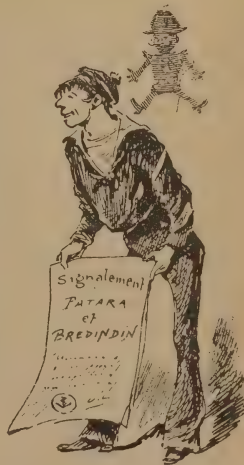 Signalement
PATARA
et
BREDINDIN